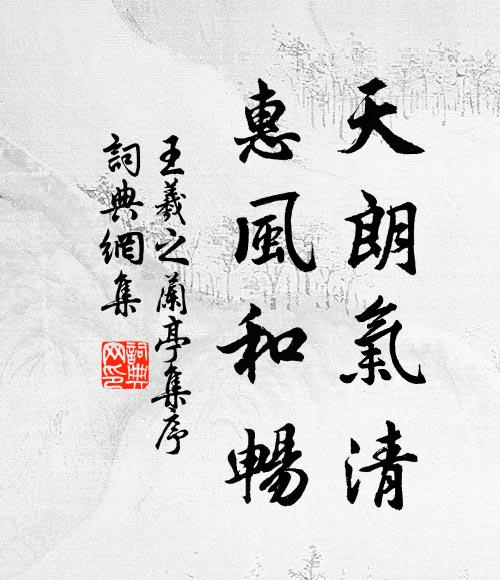 天朗氣清
惠風和暢
王羲之蘭亭集序
詞典網集
詞典網印